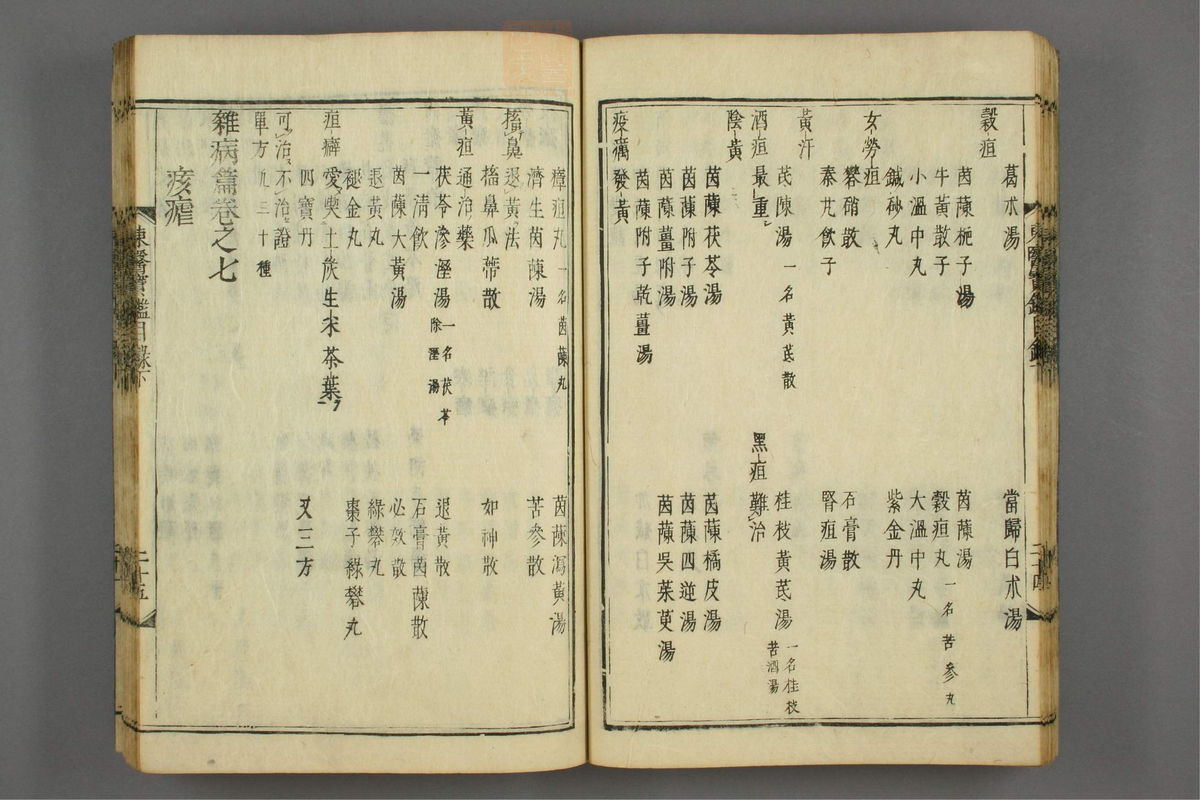 葛朮湯 當歸白朮湯
穀疸
茵蔯梔子湯 茵蔯湯
牛黃散子 穀疸丸 一名苦參丸
小溫中丸 大溫中丸
鍼砂丸 紫金丹
女勞疸
礬硝散 石膏散
秦艽飲子 腎疸湯
黃汗
芪陳湯 一名黃芪散 桂枝黃芪湯 一名桂枝苦酒湯
酒疸最重 黑疸難治
陰黃
茵蔯茯苓湯 茵蔯橘皮湯
茵蔯附子湯 茵蔯四逆湯
茵蔯薑附湯 茵蔯吳茱萸湯
茵蔯附子乾薑湯
疫癘發黃
瘴疸丸 一名茵蔯丸 茵蔯瀉黃湯
濟生茵蔯湯 苦參散
搐鼻退黃法
搐鼻瓜蔕散 如神散
黃疸通治藥
茯苓滲溼湯 一名茯苓除溼湯 退黃散
一清飲 石膏茵蔯散
茵蔯大黃湯 必效散
退黃丸 綠礬丸
褪金丸 棗子綠礬丸
疸癖愛喫土炭生米茶葉
四寶丹 又三方
可治不治證
單方 九三十種
雜病篇卷之七
痎瘧
東醫寶鑑目錄下 二十五